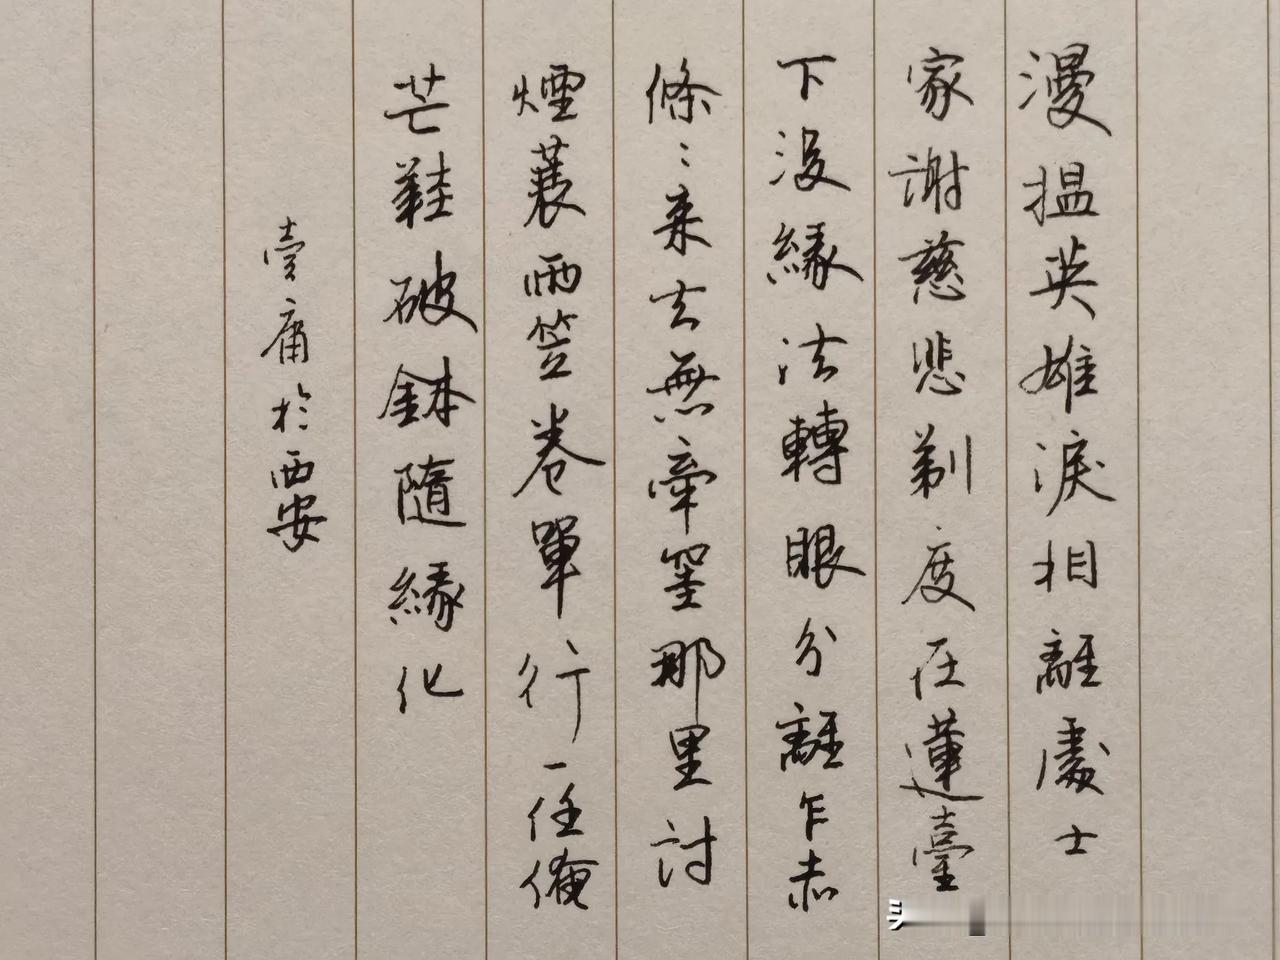 漫揾英雄淚相離處士
家謝慈悲剃度在蓮臺
下沒緣法轉眼分離乍赤
條〻來去無牽罣那里討
煙蓑雨笠卷單行一任俺
芒鞋破鉢隨緣化
庸於西安